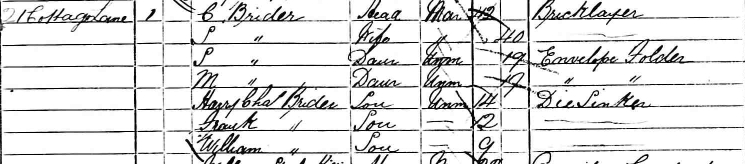 21 Cottage Lane 1 C. Brider Head Mar 42 Bricklayer
S " Wife " 40
S " Daur Unm 19 Envelope Folder
M " Daur Unm 19 " "
Harry Chas Brider Son Unm 14 Die Sinker
Frank " Son — 12
William " Son — 9